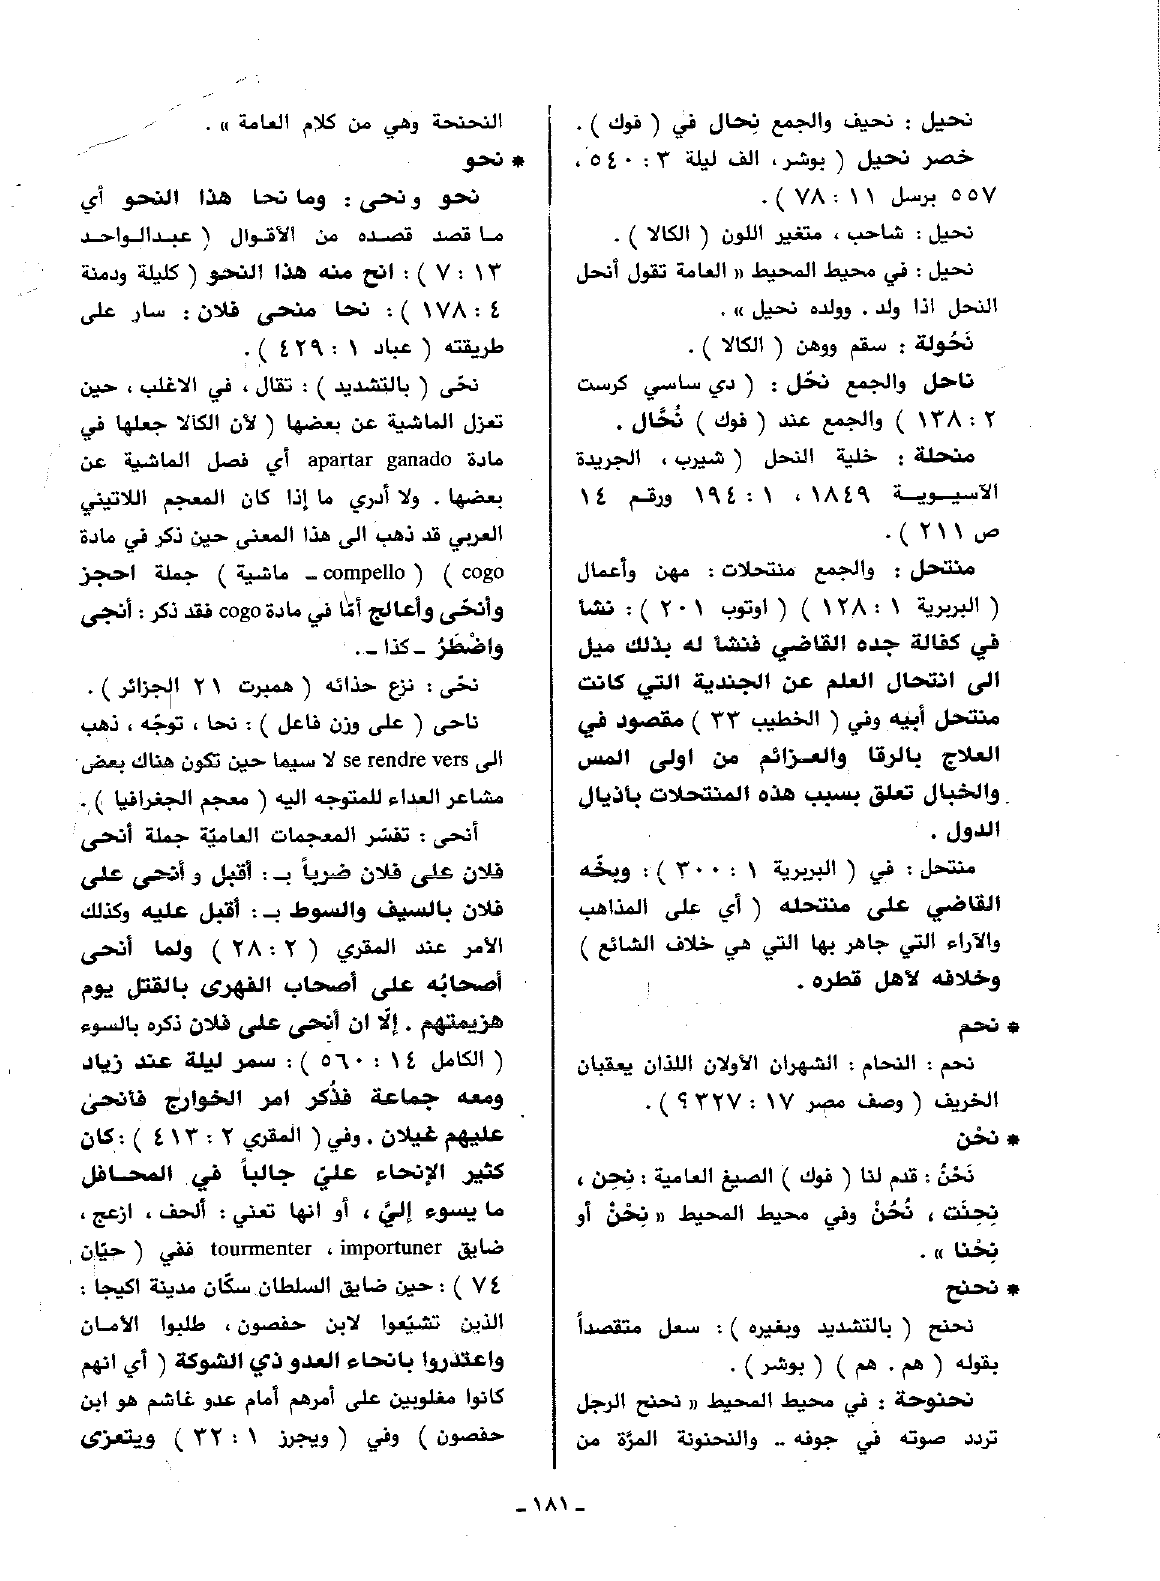 نحيل : نحيف والجمع نِحال في ( فوك ) .
خصر نحيل ( بوشر ، الف ليلة ٣ : ٥٤٠ ،
٥٥٧ برسل ١١ : ٧٨ ) .
نحيل : شاحب ، متغير اللون ( الكالا ) .
نحيل : في محيط المحيط « العامة تقول أنحل
النحل اذا ولد . وولده نحيل » .
نَحُولة : سقم ووهن ( الكالا ) .
ناحل والجمع نحّل : ( دي ساسي كرست
٢ : ١٣٨ ) والجمع عند ( فوك ) نُحَّال .
منحلة : خلية النحل ( شيرب ، الجريدة
الآسيوية ١٨٤٩ ، ١ : ١٩٤ ورقم ١٤
ص ٢١١ ) .
منتحل : والجمع منتحلات : مهن وأعمال
( البربرية ١ : ١٢٨ ) ( اوتوب ٢٠١ ) : نشأ
في كفالة جده القاضي فنشأ له بذلك ميل
الى انتحال العلم عن الجندية التي كانت
منتحل أبيه وفي ( الخطيب ٣٣ ) مقصود في
العلاج بالرقا والعزائم من اولى المس
والخبال تعلق بسبب هذه المنتحلات بأذيال
الدول .
منتحل : في ( البربرية ١ : ٣٠٠ ) : وبخّه
القاضي على منتحله ( أي على المذاهب
والآراء التي جاهر بها التي هي خلاف الشائع )
وخلافه لأهل قطره .
* نحم
نحم : النحام : الشهران الأولان اللذان يعقبان
الخريف ( وصف مصر ١٧ : ٣٢٧ ؟ ) .
* نحْن
نَحْنُ : قدم لنا ( فوك ) الصيغ العامية : نِحِن ،
نِحِنَت ، نُحُنْ وفي محيط المحيط « نِحْنْ أو
نِحْنا » .
* نحنح
نحنح ( بالتشديد وبغيره ) : سعل متقصداً
بقوله ( هم . هم ) ( بوشر ) .
نحنوحة : في محيط المحيط « نحنح الرجل
تردد صوته في جوفه .. والنحنونة المرَّة من
النحنحة وهي من كلام العامة » .
* نحو
نحو ونحى : وما نحا هذا النحو أي
ما قصد قصده من الأقوال ( عبد الواحد
١٣ : ٧ ) : انح منه هذا النحو ( كليلة ودمنة
٤ : ١٧٨ ) : نحا منحى فلان : سار على
طريقته ( عباد ١ : ٤٢٩ ) .
نحّى ( بالتشديد ) : تقال ، في الاغلب ، حين
تعزل الماشية عن بعضها ( لأن الكالا جعلها في
مادة apartar ganado أي فصل الماشية عن
بعضها . ولا أدري ما إذا كان المعجم اللاتيني
العربي قد ذهب الى هذا المعنى حين ذكر في مادة
cogo ) ( compello – ماشية ) جملة احجز
وأنحّى وأعالج أمّا في مادة cogo فقد ذكر : أنجى
واضْطَرُ – كذا – .
نحّى : نزع حذائه ( همبرت ٢١ الجزائر ) .
ناحى ( على وزن فاعل ) : نحا ، توجّه ، ذهب
الى se rendre vers لا سيما حين تكون هناك بعض
مشاعر العداء للمتوجه اليه ( معجم الجغرافيا ) .
أنحى : تفسّر المعجمات العاميّة جملة أنحى
فلان على فلان ضرباً بـ : أقبل و أنحى على
فلان بالسيف والسوط بـ : أقبل عليه وكذلك
الأمر عند المقري ( ٢ : ٢٨ ) ولما أنحى
أصحابُه على أصحاب الفهرى بالقتل يوم
هزيمتهم . إلّا ان أنحى على فلان ذكره بالسوء
( الكامل ١٤ : ٥٦٠ ) : سمر ليلة عند زياد
ومعه جماعة فذُكر امر الخوارج فأنحىٰ
عليهم غيلان . وفي ( المقري ٢ : ٤١٣ ) : كان
كثير الإنحاء عليّ جالباً في المحافل
ما يسوء إليَّ ، أو انها تعني : ألحف ، ازعج ،
ضايق tourmenter ، importuner ففي ( حيّان
٧٤ ) : حين ضايق السلطان سكّان مدينة اكيجا :
الذين تشيّعوا لابن حفصون ، طلبوا الأمان
واعتذروا بانحاء العدو ذي الشوكة ( أي انهم
كانوا مغلوبين على أمرهم أمام عدو غاشم هو ابن
حفصون ) وفي ( ويجرز ١ : ٣٢ ) ويتعزى
– ١٨١ –